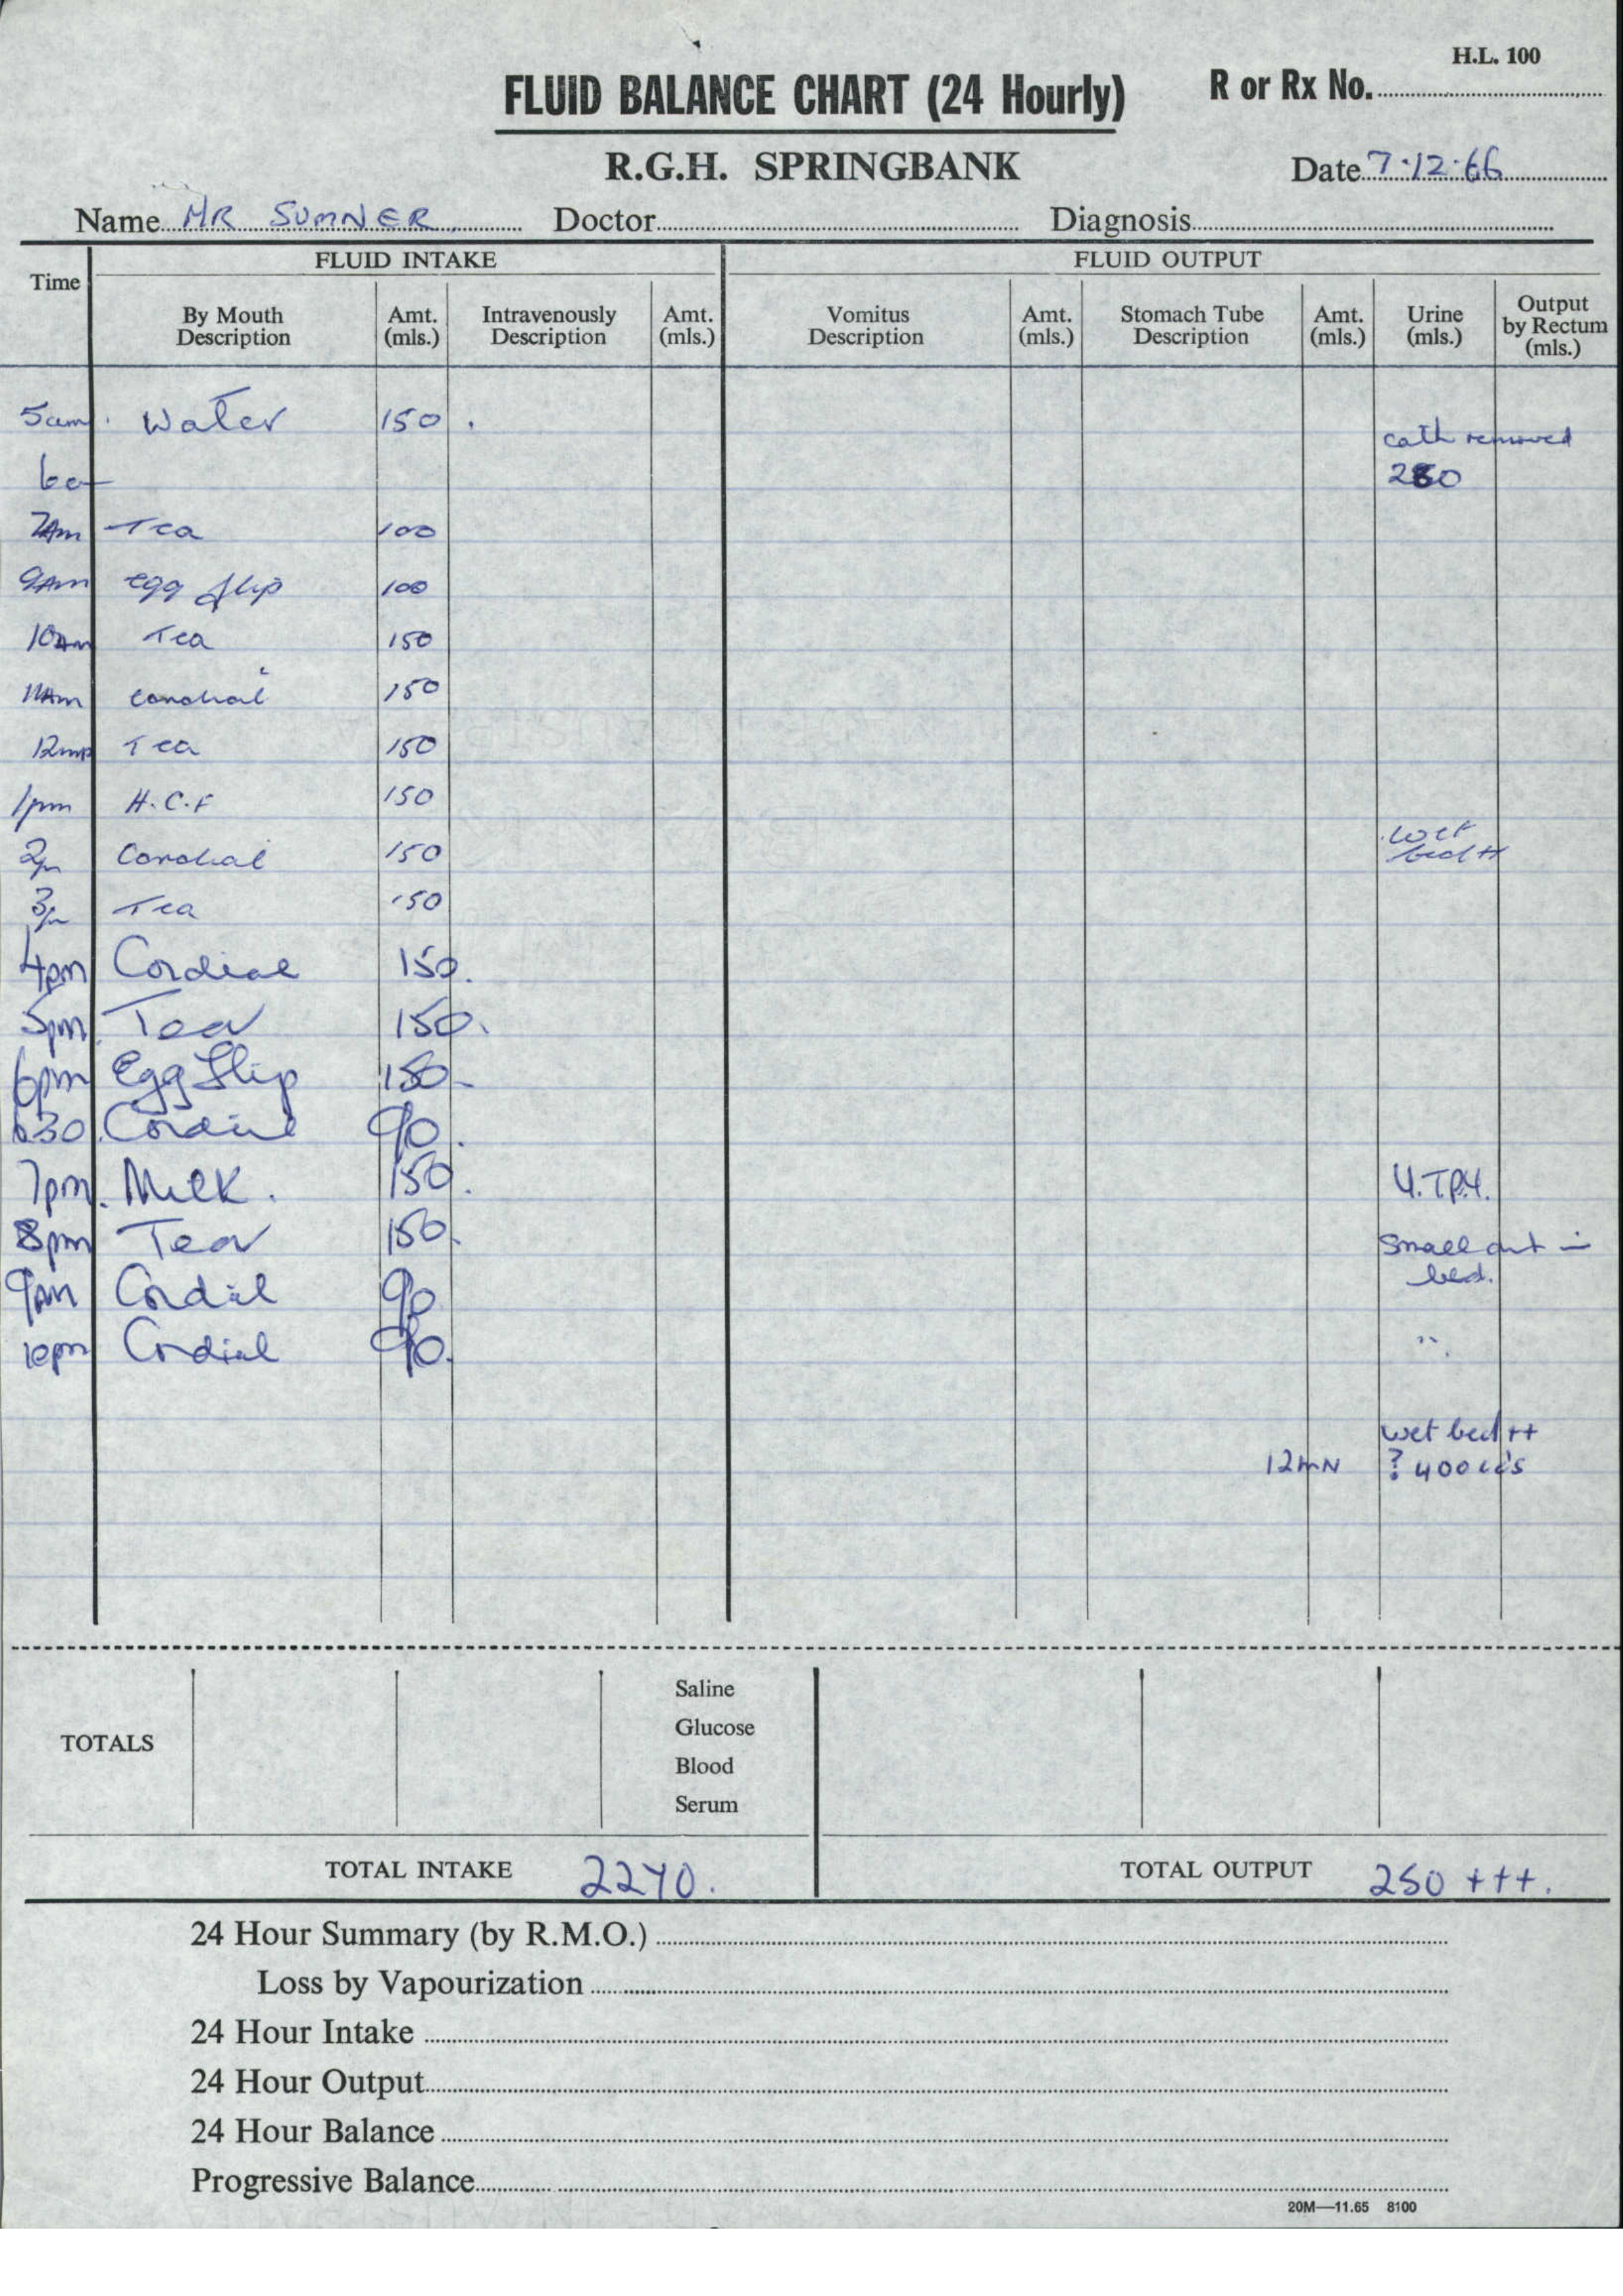 H.L. 100
FLUID BALANCE CHART (24 Hourly) R or Rx No.
R.G.H. SPRINGBANK Date 7.12.66
Name MR SUMNER Doctor Diagnosis
Time FLUID INTAKE FLUID OUTPUT
By Mouth Description Amt. (mls.) Intravenously Description Amt. (mls.) Vomitus Description Amt. (mls.) Stomach Tube Description Amt. (mls.) Urine (mls.) Output by Rectum (mls.)
5am Water 150
cath removed
250
7Am Tea 100
9Am egg flip 100
10Am Tea 150
11Am Cordial 150
12md Tea 150
1pm H.C.F 150
wet
2pm Cordial 150 bed ++
3pm Tea 150
4pm Cordial 150.
5pm Tea 150.
6pm Egg Flip 150
6.30 Cordial 90.
7pm. Milk. 150. U.T.P.U.
8pm Tea 150. Small amt in
bed.
9am Cordial 90
10pm Cordial 90. "
wet bed ++
12MN ? 400 cc's
TOTALS
Saline
Glucose
Blood
Serum
TOTAL INTAKE 2270. TOTAL OUTPUT 250 +++.
24 Hour Summary (by R.M.O.)
Loss by Vapourization
24 Hour Intake
24 Hour Output
24 Hour Balance
Progressive Balance
20M—11.65 8100